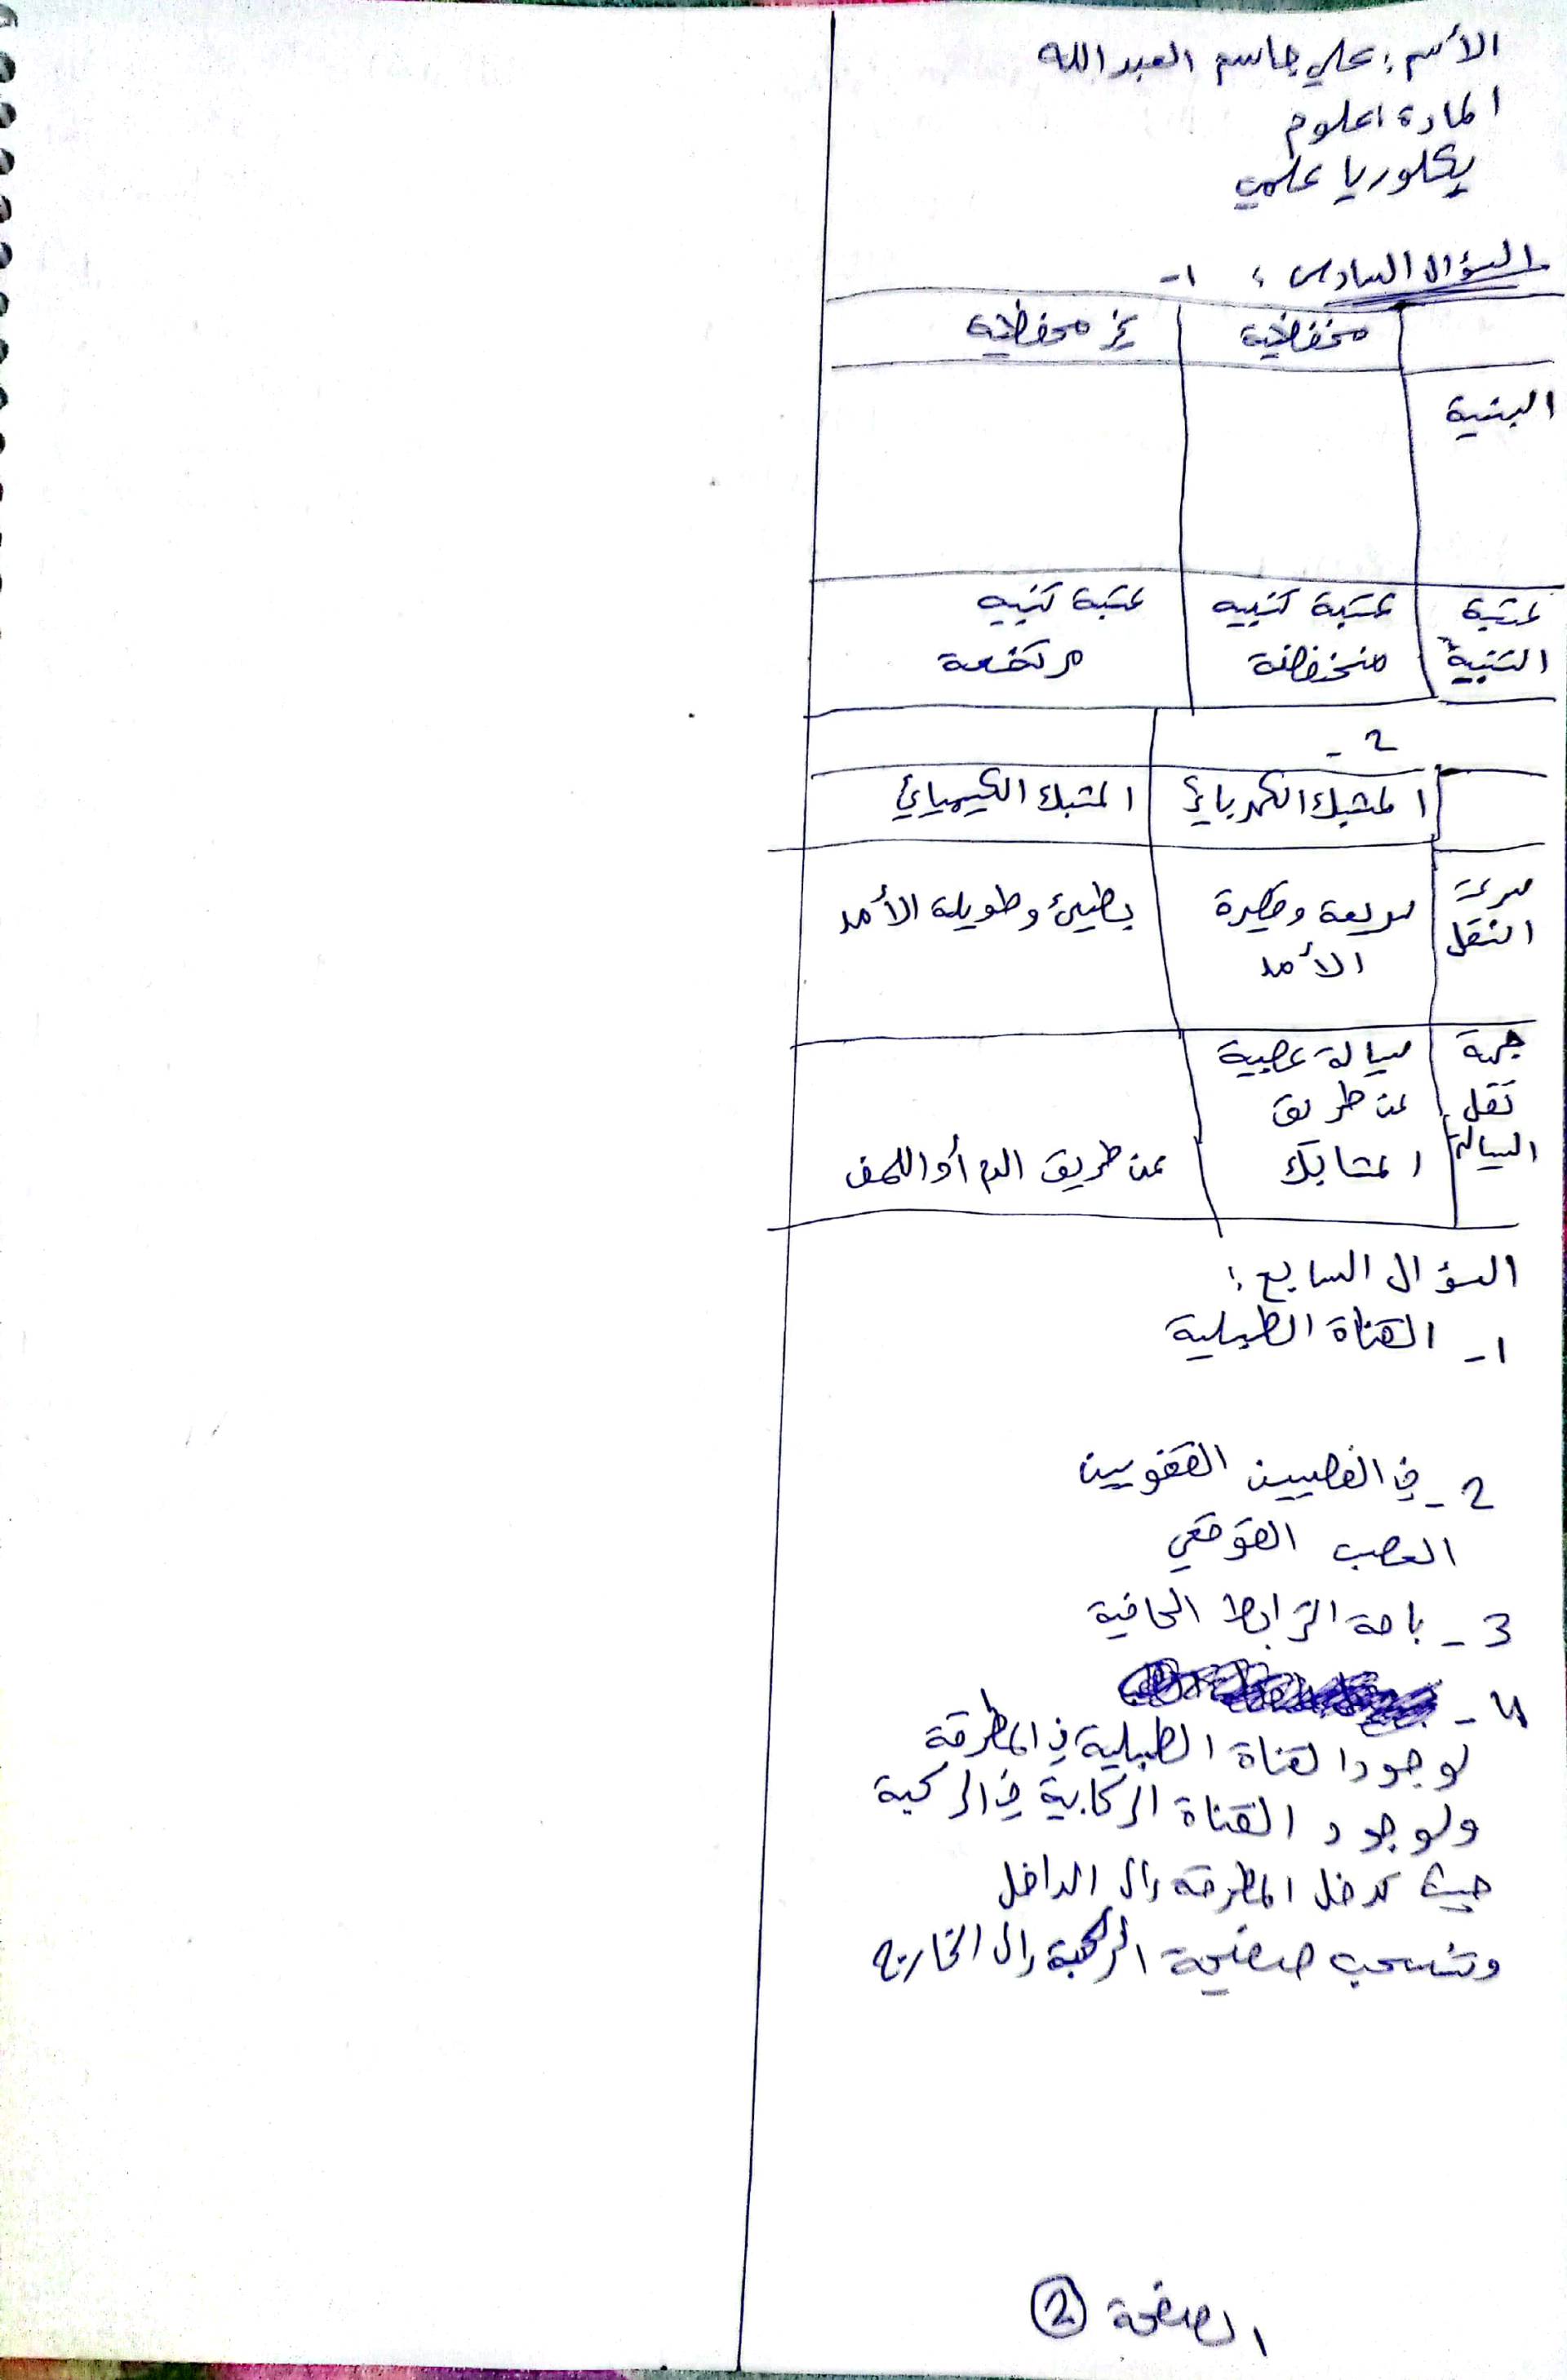 الأسم: علي جاسم العبد الله
المادة: علوم
بكلوريا علمي
السؤال السادس: 1-
محفظية غير محفظية
البنية
عتبة عتبة تنبيه عتبة تنبيه
التنبيه منخفضة مرتفعة
2-
المشبك الكهربائي المشبك الكيميائي
سرعة سريعة وقصيرة بطيئ وطويلة الأمد
النقل الأمد
جهة سيالة عصبية
نقل عن طريق
السيالة المشابك عن طريق الدم أو اللمف
السؤال السابع:
1- القناة الطبلية
2- في الفصيين القفويين
العصب القوقعي
3- باحة الترابط الحافية
4-
لوجود القناة الطبلية في المطرقة
ولوجود القناة الركابية في الركبة
حيث تدخل المطرقة إلى الداخل
وتنسحب صفيحة الركبة إلى الخارج
الصفحة 2